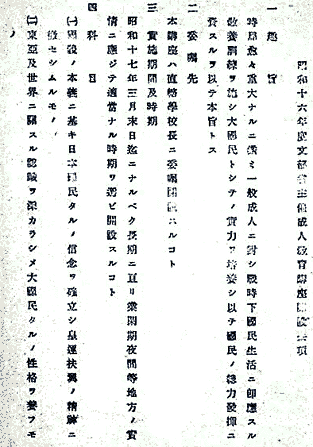 昭和十六年度文部省主催成人教育講座開設要項
一　趣　旨
時局愈々重大ナルニ鑑ミ一般成人ニ對シ戰時下國民生活ニ卽應スル
敎養訓練ヲ施シ大國民トシテノ實力ヲ培養シ以テ國民ノ總力發揮ニ
資スルヲ以テ本旨トス
二　委囑先
本講座ハ直轄學校長ニ委囑開設スルコト
三　實施期間及時期
昭和十七年三月末日迄ニナルベク長期ニ亘リ業閑期夜間等地方ノ實
情ニ應ジテ適當ナル時期ヲ選ビ開設スルコト
四　科　目
㈠國體ノ本義ニ基キ日本國民タルノ信念ヲ確立シ皇運扶翼ノ精神ニ
徹セシムルモノ
㈡東亞及世界ニ關スル認識ヲ深カラシメ大國民タルノ性格ヲ養フモ
ノ